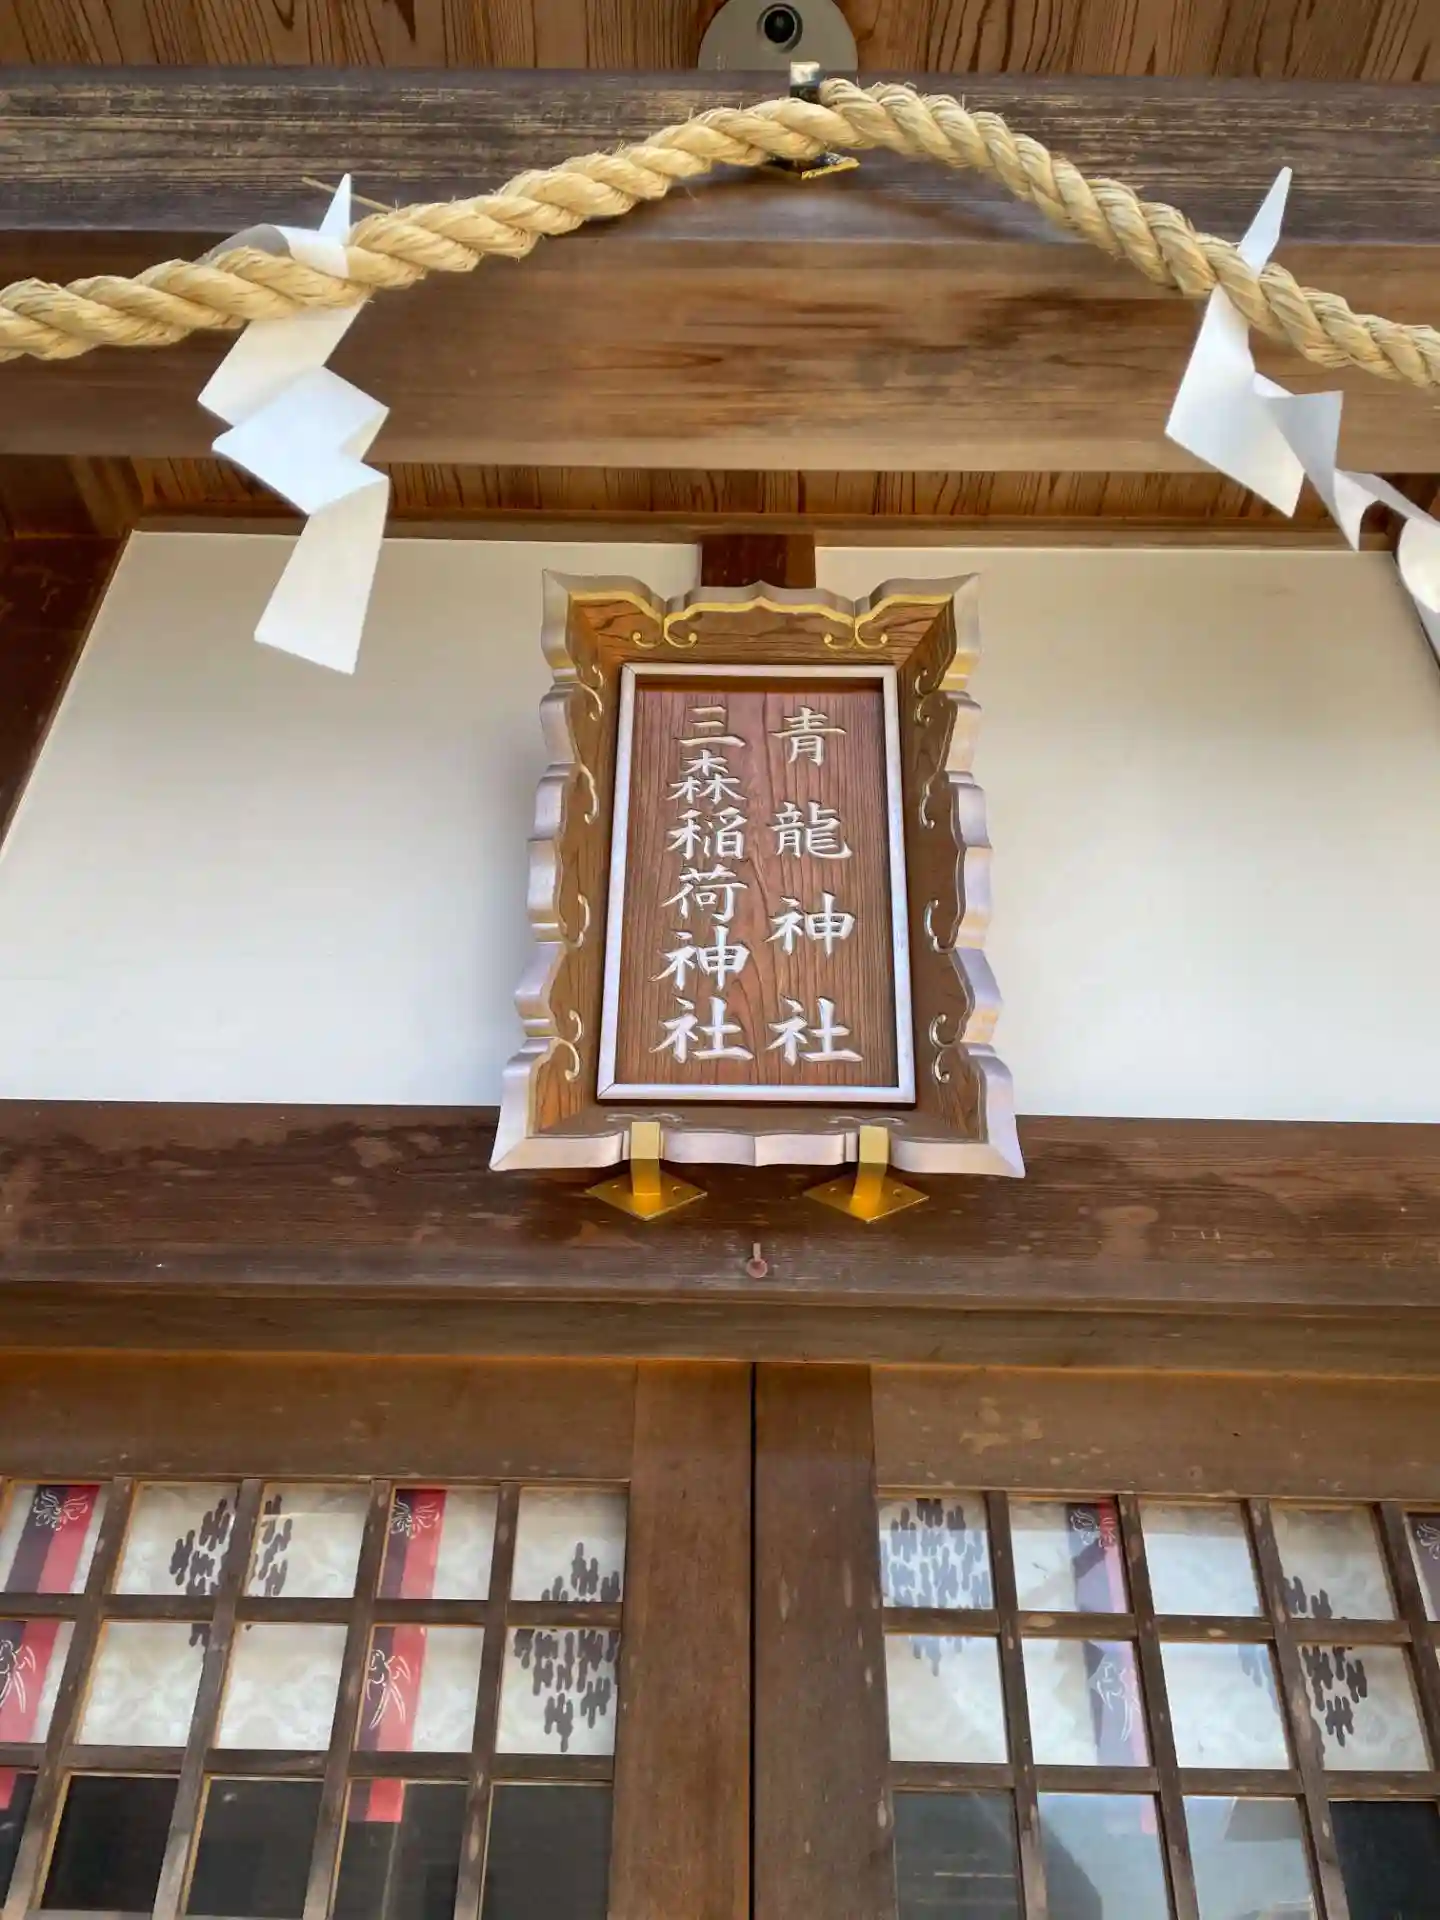 青龍神社
三森稲荷神社